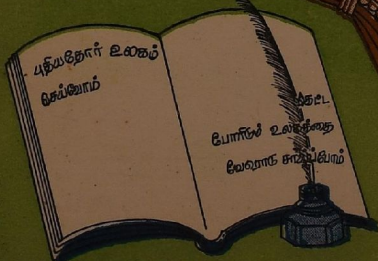 புதியதோர் உலகம்
செய்வோம்
கெட்ட
போரிடும் உலகத்தை
வேரொடு சாய்ப்போம்